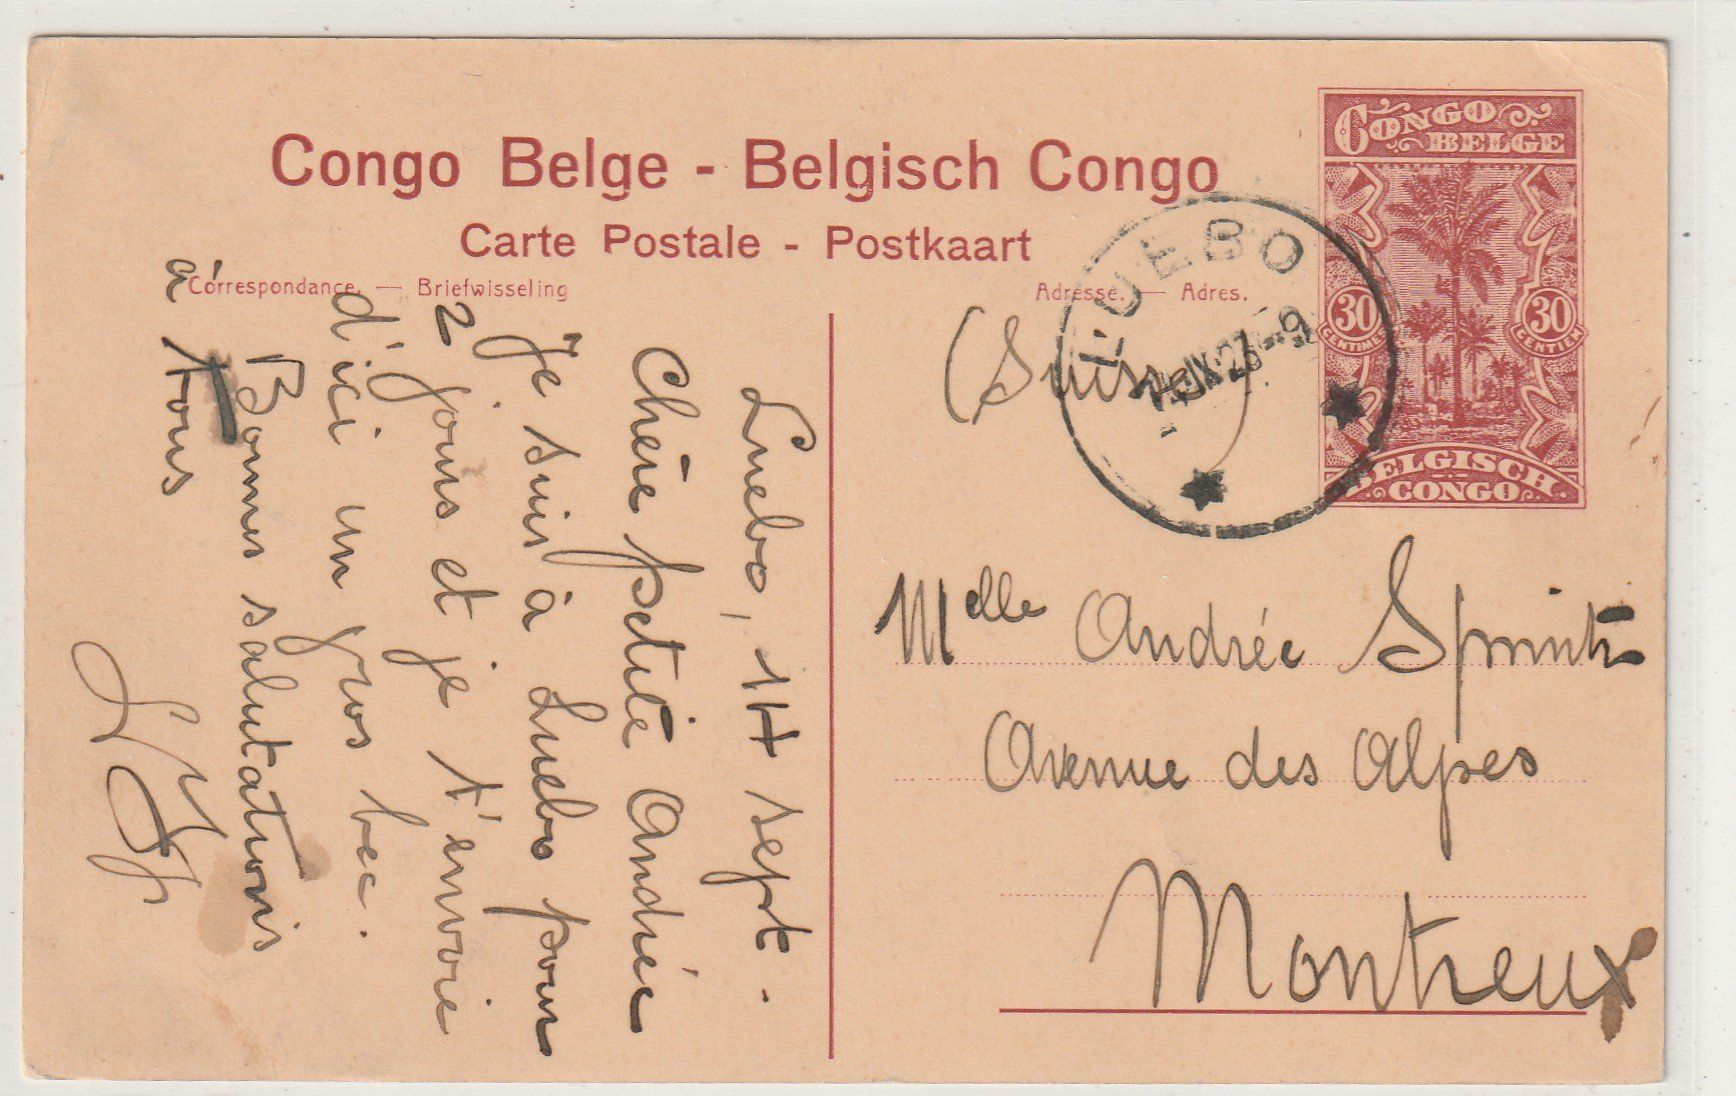 Congo Belge - Belgisch Congo
Carte Postale - Postkaart
Correspondance. — Briefwisseling
Adresse. — Adres.
CONGO BELGE
30 30
CENTIMES CENTIEM
BELGISCH CONGO
LUEBO
14 IX 23 - 9
(Suisse)
Melle Andrée
Avenue des Alpes
Montreux
Luebo, 14 sept.
Chère petite Andrée
Je suis à Luebo pour
2 jours et je t'envoie
d'ici un gros bec.
Bonnes salutations
à tous